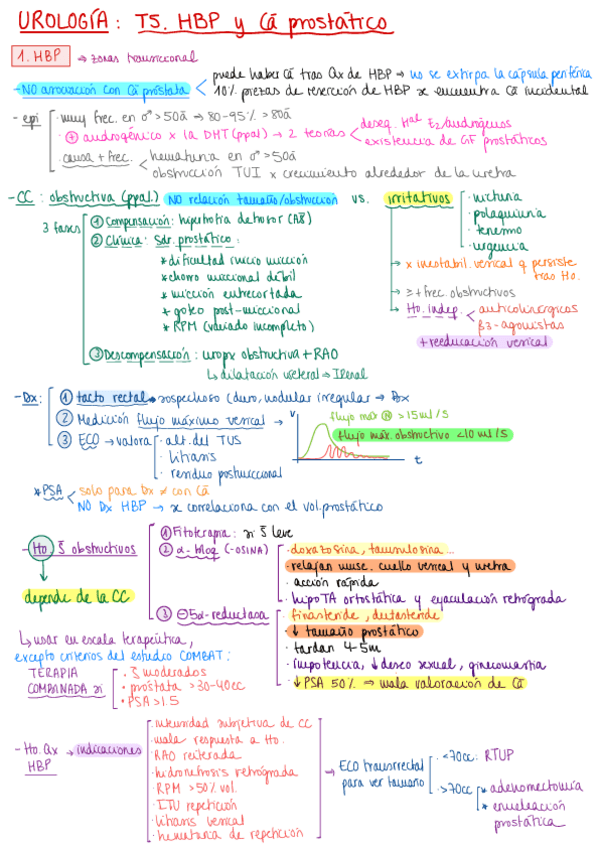 UROLOGÍA: T5. HBP y Cá prostático
1. HBP → zona transicional
- NO asociación con Cá próstata
puede haber Cá tras Qx de HBP → no se extirpa la cápsula periférica
10% piezas de resección de HBP se encuentra Cá incidental
- epi
· muy frec. en ♂ >50a → 80-95% >80a
· ⊕ androgénico x la DHT (ppal) → 2 teorías
deseq. Hal E2/andrógenos
existencia de GF prostáticos
· causa + frec.
hematuria en ♂ >50a
obstrucción TUI x crecimiento alrededor de la uretra
- CC: obstructiva (ppal.) NO relación tamaño/obstrucción vs. irritativos
· nicturia
· polaquiuria
· tenesmo
· urgencia
3 fases
① Compensación: hipertrofia detrusor (AS)
② Clínica: Sdr. prostático:
* dificultad inicio micción
* chorro miccional débil
* micción entrecortada
* goteo post-miccional
* RPM (vaciado incompleto)
③ Descompensación: uropx obstructiva + RAO
↳ dilatación ureteral → IRenal
→ x inestabil. vesical q persiste tras tto.
→ ≥ + frec. obstructivos
→ tto. indep.
anticolinérgicos
β3-agonistas
+ reeducación vesical
- Dx:
① tacto rectal → sospechoso (duro, nodular irregular → Bx
② Medición flujo máximo vesical →
③ ECO → valora
· alt. del TUS
· litiasis
· residuo postmiccional
V
flujo máx Ⓝ >15 ml/s
flujo máx. obstructivo <10 ml/s
t
* PSA
solo para Dx ≠ con Cá
NO Dx HBP → se correlaciona con el vol. prostático
- tto. S obstructivos
↓
depende de la CC
① Fitoterapia: si S leve
② α-bloq (-OSINA)
· doxazosina, tamsulosina...
· relajan musc. cuello vesical y uretra
· acción rápida
· hipoTA ortostática y eyaculación retrógrada
③ ⊖ 5α-reductasa
· finasteride, dutasteride
· ↓ tamaño prostático
· tardan 4-5m
· impotencia, ↓ deseo sexual, ginecomastia
· ↓ PSA 50% ⇒ mala valoración de Cá
↳ usar en escala terapéutica,
excepto criterios del estudio COMBAT:
TERAPIA COMBINADA si
· S moderados
· próstata >30-40cc
· PSA >1.5
- tto. Qx HBP → indicaciones
· intensidad subjetiva de CC
· mala respuesta a tto.
· RAO reiterada
· hidronefrosis retrógrada
· RPM >50% vol.
· ITU repetición
· litiasis vesical
· hematuria de repetición
→ ECO transrrectal para ver tamaño
· <70cc: RTUP
· >70cc
* adenomectomía
* enucleación prostática